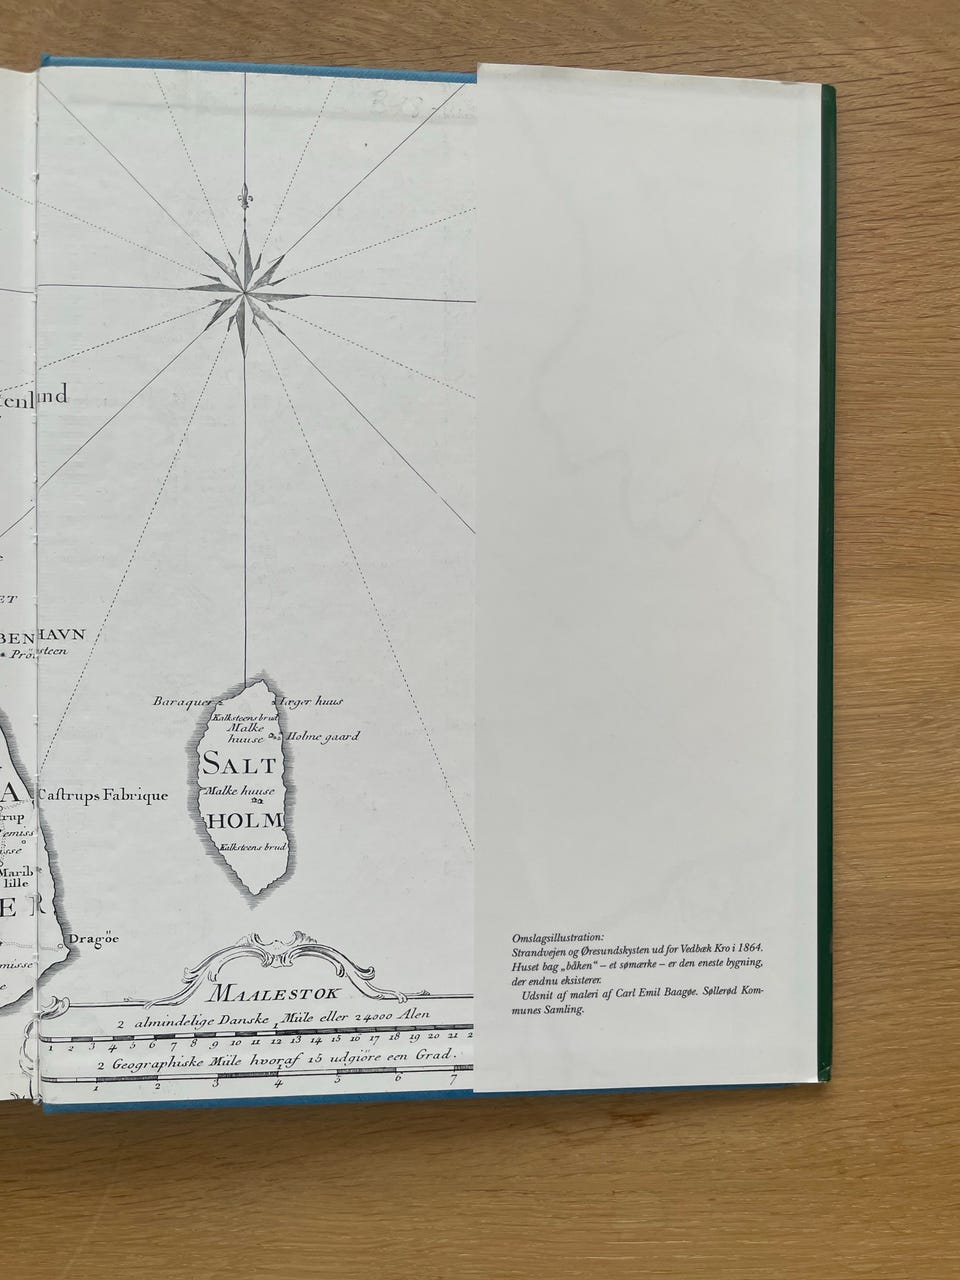 enland
ET
BENHAVN
Pröfsteen
Baraquer
Jæger huus
Kalksteens brud
Malke
huuse
Holme gaard
SALT
A
Caſtrups Fabrique
Malke huuse
trup
HOLM
Kalksteens brud
Marib
lille
E R
Dragöe
MAALESTOK
2 almindelige Danske Müle eller 24000 Alen
1 2 3 4 5 6 7 8 9 10 11 12 13 14 15 16 17 18 19 20 21 2
2 Geographiske Müle hvoraf 15 udgiöre een Grad.
1 2 3 4 5 6 7
Omslagsillustration:
Strandvejen og Øresundskysten ud for Vedbæk Kro i 1864.
Huset bag „båken“ – et sømærke – er den eneste bygning,
der endnu eksisterer.
Udsnit af maleri af Carl Emil Baagøe. Søllerød Kom-
munes Samling.